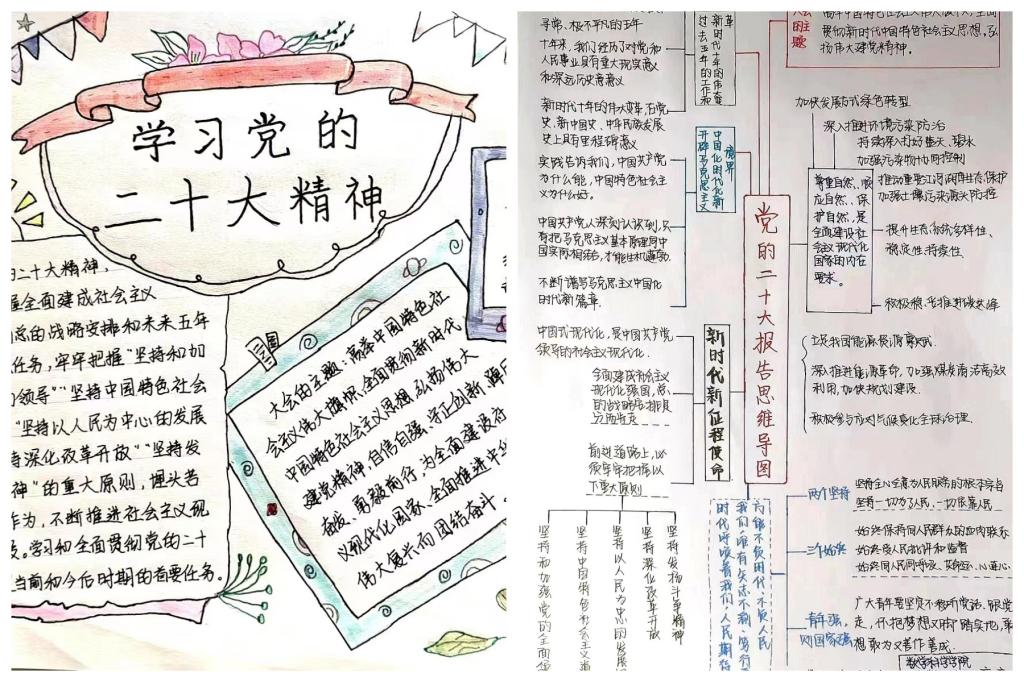 学习党的
二十大精神
二十大精神,
全面建成社会主义
总的战略安排和未来五年
任务,牢牢把握“坚持和加
领导”“坚持中国特色社会
“坚持以人民为中心的发展
持深化改革开放”“坚持发
神”的重大原则,埋头苦
作为,不断推进社会主义现
学习和全面贯彻党的二十
当前和今后时期的首要任务。
大会的主题:高举中国特色社
会主义伟大旗帜,全面贯彻新时代
中国特色社会主义思想,弘扬伟大
建党精神,自信自强、守正创新,踔厉
奋发、勇毅前行,为全面建设社
义现代化国家、全面推进中华
伟大复兴而团结奋斗。
寻常、极不平凡的五年
十年来,我们经历了对党和
人民事业具有重大现实意义
和深远历史意义
新时代十年的伟大变革,在党
史、新中国史、中华民族发展
史上具有里程碑意义
实践告诉我们,中国共产党
为什么能,中国特色社会主
义为什么好。
中国共产党人深刻认识到,只
有把马克思主义基本原理同中
国实际相结合,才能
不断谱写马克思主义中国化
时代新篇章。
中国式现代化,是中国共产党
领导的社会主义现代化.
全面建成社会主义
现代化强国,总
的战略安排是
分两步走
前进道路上,必
须牢牢把握以
下重大原则
坚持和加强党的全面领
坚持中国特色社会主义道
坚持以人民为中心的发展
坚持深化改革开放
坚持发扬斗争精神
过去五年的工作和
新时代十年的伟大变革
开辟马克思主义
中国化时代化新
境界
新时代新征程使命
党的二十大报告思维导图
时代呼唤着我们,人民期待
我们唯有矢志不渝、笃行
为能不负时代、不负人民
大会的主题
贯彻新时代中国特色社会主义思想,弘
扬伟大建党精神。
加快发展方式绿色转型
深入推进环境污染防治
持续深入打好蓝天、碧水
加强污染物协同控制
推动重要江河湖库生态保护
加强土壤污染源头防控
尊重自然、顺
应自然、保
护自然,是
全面建设社
会主义现代化
国家的内在
要求。
提升生态系统多样性、
稳定性、持续性.
积极稳妥推进碳达峰
立足我国能源资源禀赋.
深入推进能源革命,加强煤炭清洁高效
利用,加快规划建设.
积极参与应对气候变化全球治理.
两个坚持
坚持全心全意为人民服务的根本宗旨
坚持一切为了人民、一切依靠人民
三个始终
始终保持同人民群众的血肉联系
始终接受人民批评和监督
始终同人民同呼吸、共命运、心连心
青年强,
则国家强
广大青年要坚定不移听党话、跟党
走,怀抱梦想又脚踏实地,敢
想敢为又善作善成.
数学科学学院